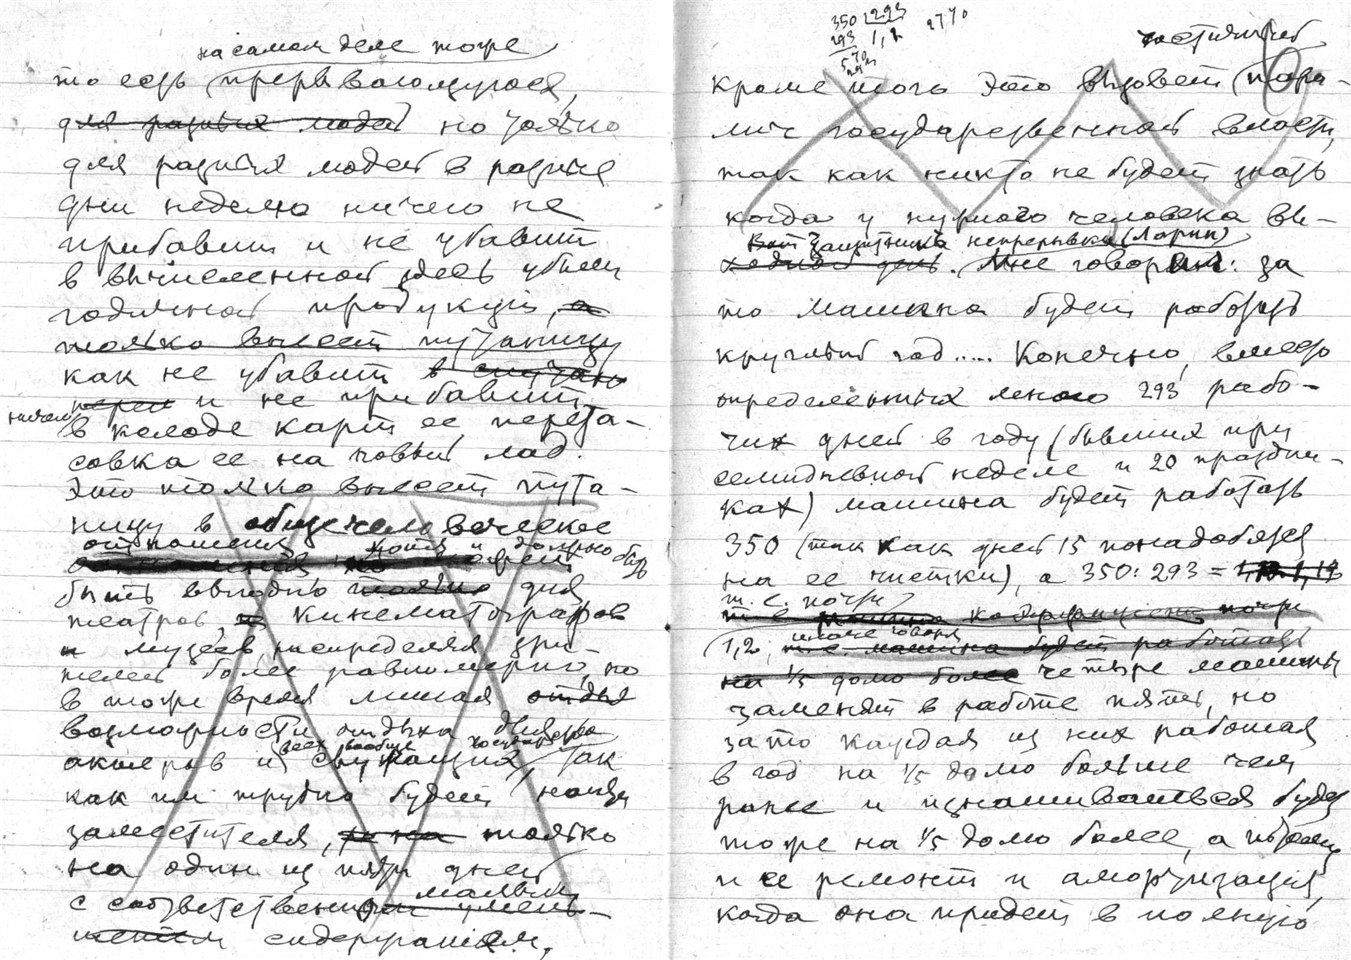 на самом деле тоже
то есть прерывающуюся,
для разных людей но только
для разных людей в разные
дни неделю ничего не
прибавит и не убавит
в вычисленной здесь убыли
годичной продукции, а
только внесет путаницу
как не убавит и не прибавит
ничего
в колоде карт ее перета-
совка ее на новый лад.
Это только внесет пута-
ницу в общечеловеческое
отношения хотя и
быть выгодно только для
театров, и кинематографов
и музеев, распределяя зри-
телей более равномерно, но
в тоже время лишая отдых
возможности отдыха для
актеров и всех вообще служащих так
как им трудно будет найти
заместителя, только
на один из пяти дней
с соответственным малым умень-
шением содержанием,
350 293 27%
293 1,2
570
частичный
кроме того это вызовет пара-
лич государственной власти,
так как никто не будет знать
когда у нужного человека вы-
Вот защитники непрерывки (Ларин)
ходной день. Мне говорили: за
то машина будет работать
круглый год..... Конечно, вместо
определенных мною 293 рабо-
чих дней в году (бывших при
семидневной неделе и 20 праздни-
ках) машина будет работать
350 (так как дней 15 понадобятся
на ее чистки), а 350:293 =
т. е. почти
иначе говоря
1,2, т.е. машина будет работать
на 1/5 долю более четыре машины
заменят в работе пять, но
зато каждая из них работая
в год на 1/5 долю больше чем
ранее и изнашиваться будет
тоже на 1/5 долю более, а потому
и ее ремонт и амортизация,
когда она придет в полную